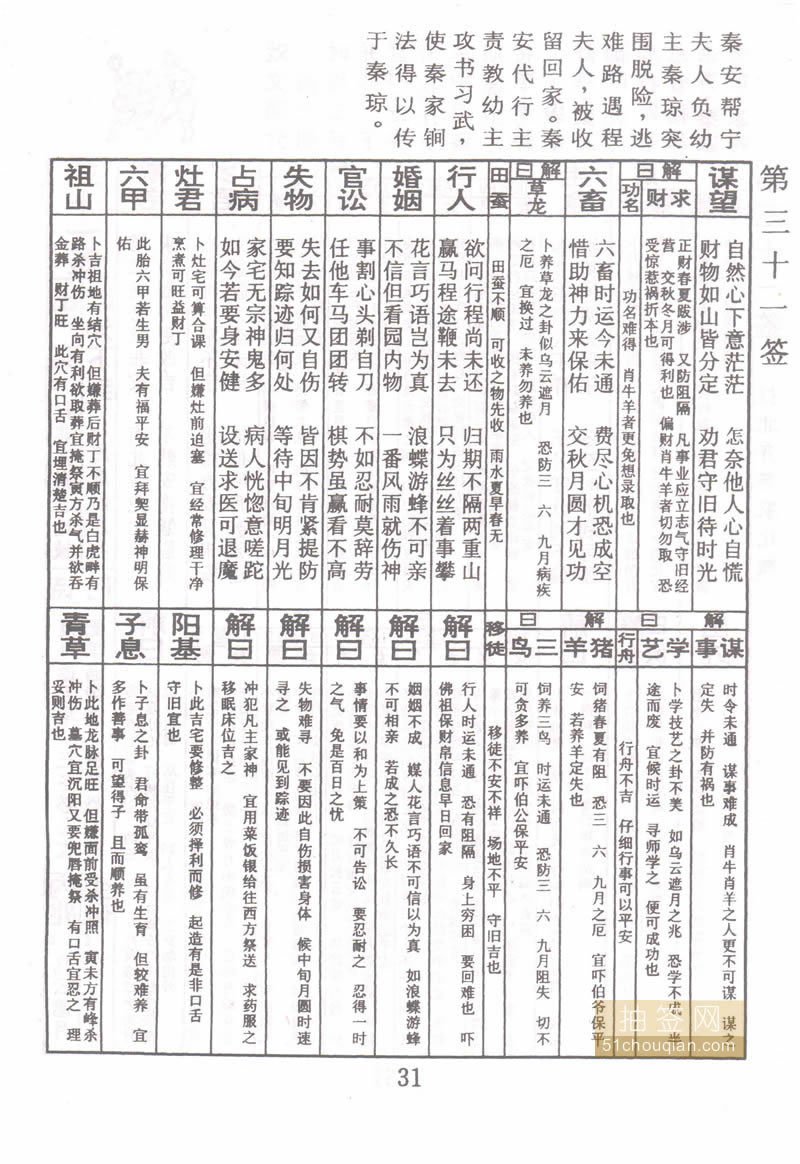 第三十一签
秦安帮宁
夫人负幼
主秦琼突
围脱险，逃
难路遇程
夫人，被收
留回家。秦
安代行主
责教幼主
攻书习武，
使秦家锏
法得以传
于秦琼。
谋望
自然心下意茫茫 怎奈他人心自慌
财物如山皆分定 劝君守旧待时光
解曰
求财
正财春夏跋涉 又防阻隔 凡事业应立志气守旧经
营 交秋冬月可得利也 偏财肖牛羊者切勿取 恐
受惊惹祸折本也
功名
功名难得 肖牛羊者更免想录取也
六畜
六畜时运今未通 费尽心机恐成空
惜助神力来保佑 交秋月圆才见功
解曰
草龙
卜养草龙之卦似乌云遮月 恐防三 六 九月病疾
之厄 宜换过 未养勿养也
田蚕
田蚕不顺 可收之物先收 雨水夏早春无
行人
欲问行程尚未还 归期不隔两重山
赢马程途鞭未去 只为丝丝着事攀
婚姻
花言巧语岂为真 浪蝶游蜂不可亲
不信但看园内物 一番风雨就伤神
官讼
事割心头剃自刀 不如忍耐莫辞劳
任他车马团团转 棋势虽赢看不高
失物
失去如何又自伤 皆因不肯紧提防
要知踪迹归何处 等待中旬明月光
占病
家宅无宗神鬼多 病人恍惚意嗟跎
如今若要身安健 设送求医可退魔
灶君
卜灶宅可算合课 但嫌灶前迫塞 宜经常修理干净
烹煮可旺益财丁
六甲
此胎六甲若生男 夫有福平安 宜拜契显赫神明保
佑
祖山
卜吉祖地有结穴 但嫌葬后财丁不顺乃是白虎畔有
路杀冲伤 坐向有利欲取葬宜掩祭寅方杀气并欲吞
金葬 财丁旺 此穴有口舌 宜埋清楚吉也
解曰
谋事
时令未通 谋事难成 肖牛肖羊之人更不可谋 谋之
定失 并防有祸也
学艺
卜学技艺之卦不美 如乌云遮月之兆 恐学不成 半
途而废 宜候时运 寻师学之 便可成功也
行舟
行舟不吉 仔细行事可以平安
解曰
猪羊
饲猪春夏有阻 恐三 六 九月之厄 宜吓伯爷保平
安 若养羊定失也
三鸟
饲养三鸟 时运未通 恐防三 六 九月阻失 切不
可贪多养 宜吓伯公保平安
移徒
移徒不安不祥 场地不平 守旧吉也
解曰
行人时运未通 恐有阻隔 身上穷困 要回难也 吓
佛祖保财帛信息早日回家
解曰
姻姻不成 媒人花言巧语不可信以为真 如浪蝶游蜂
不可相亲 若成之恐不久长
解曰
事情要以和为上策 不可告讼 要忍耐之 忍得一时
之气 免是百日之忧
解曰
失物难寻 不要因此自伤损害身体 候中旬月圆时速
寻之 或能见到踪迹
解曰
冲犯凡主家神 宜用菜饭银给往西方祭送 求药服之
移眠床位吉之
阳基
卜此吉宅要修整 必须择利而修 起造有是非口舌
守旧宜也
子息
卜子息之卦 君命带孤鸾 虽有生育 但较难养 宜
多作善事 可望得子 且而顺养也
青草
卜此地龙脉足旺 但嫌面前受杀冲照 寅未方有峰杀
冲伤 墓穴宜沉阳又要兜唇掩祭 有口舌宜忍之 理
妥则吉也
31
抽签网
51chouqian.com